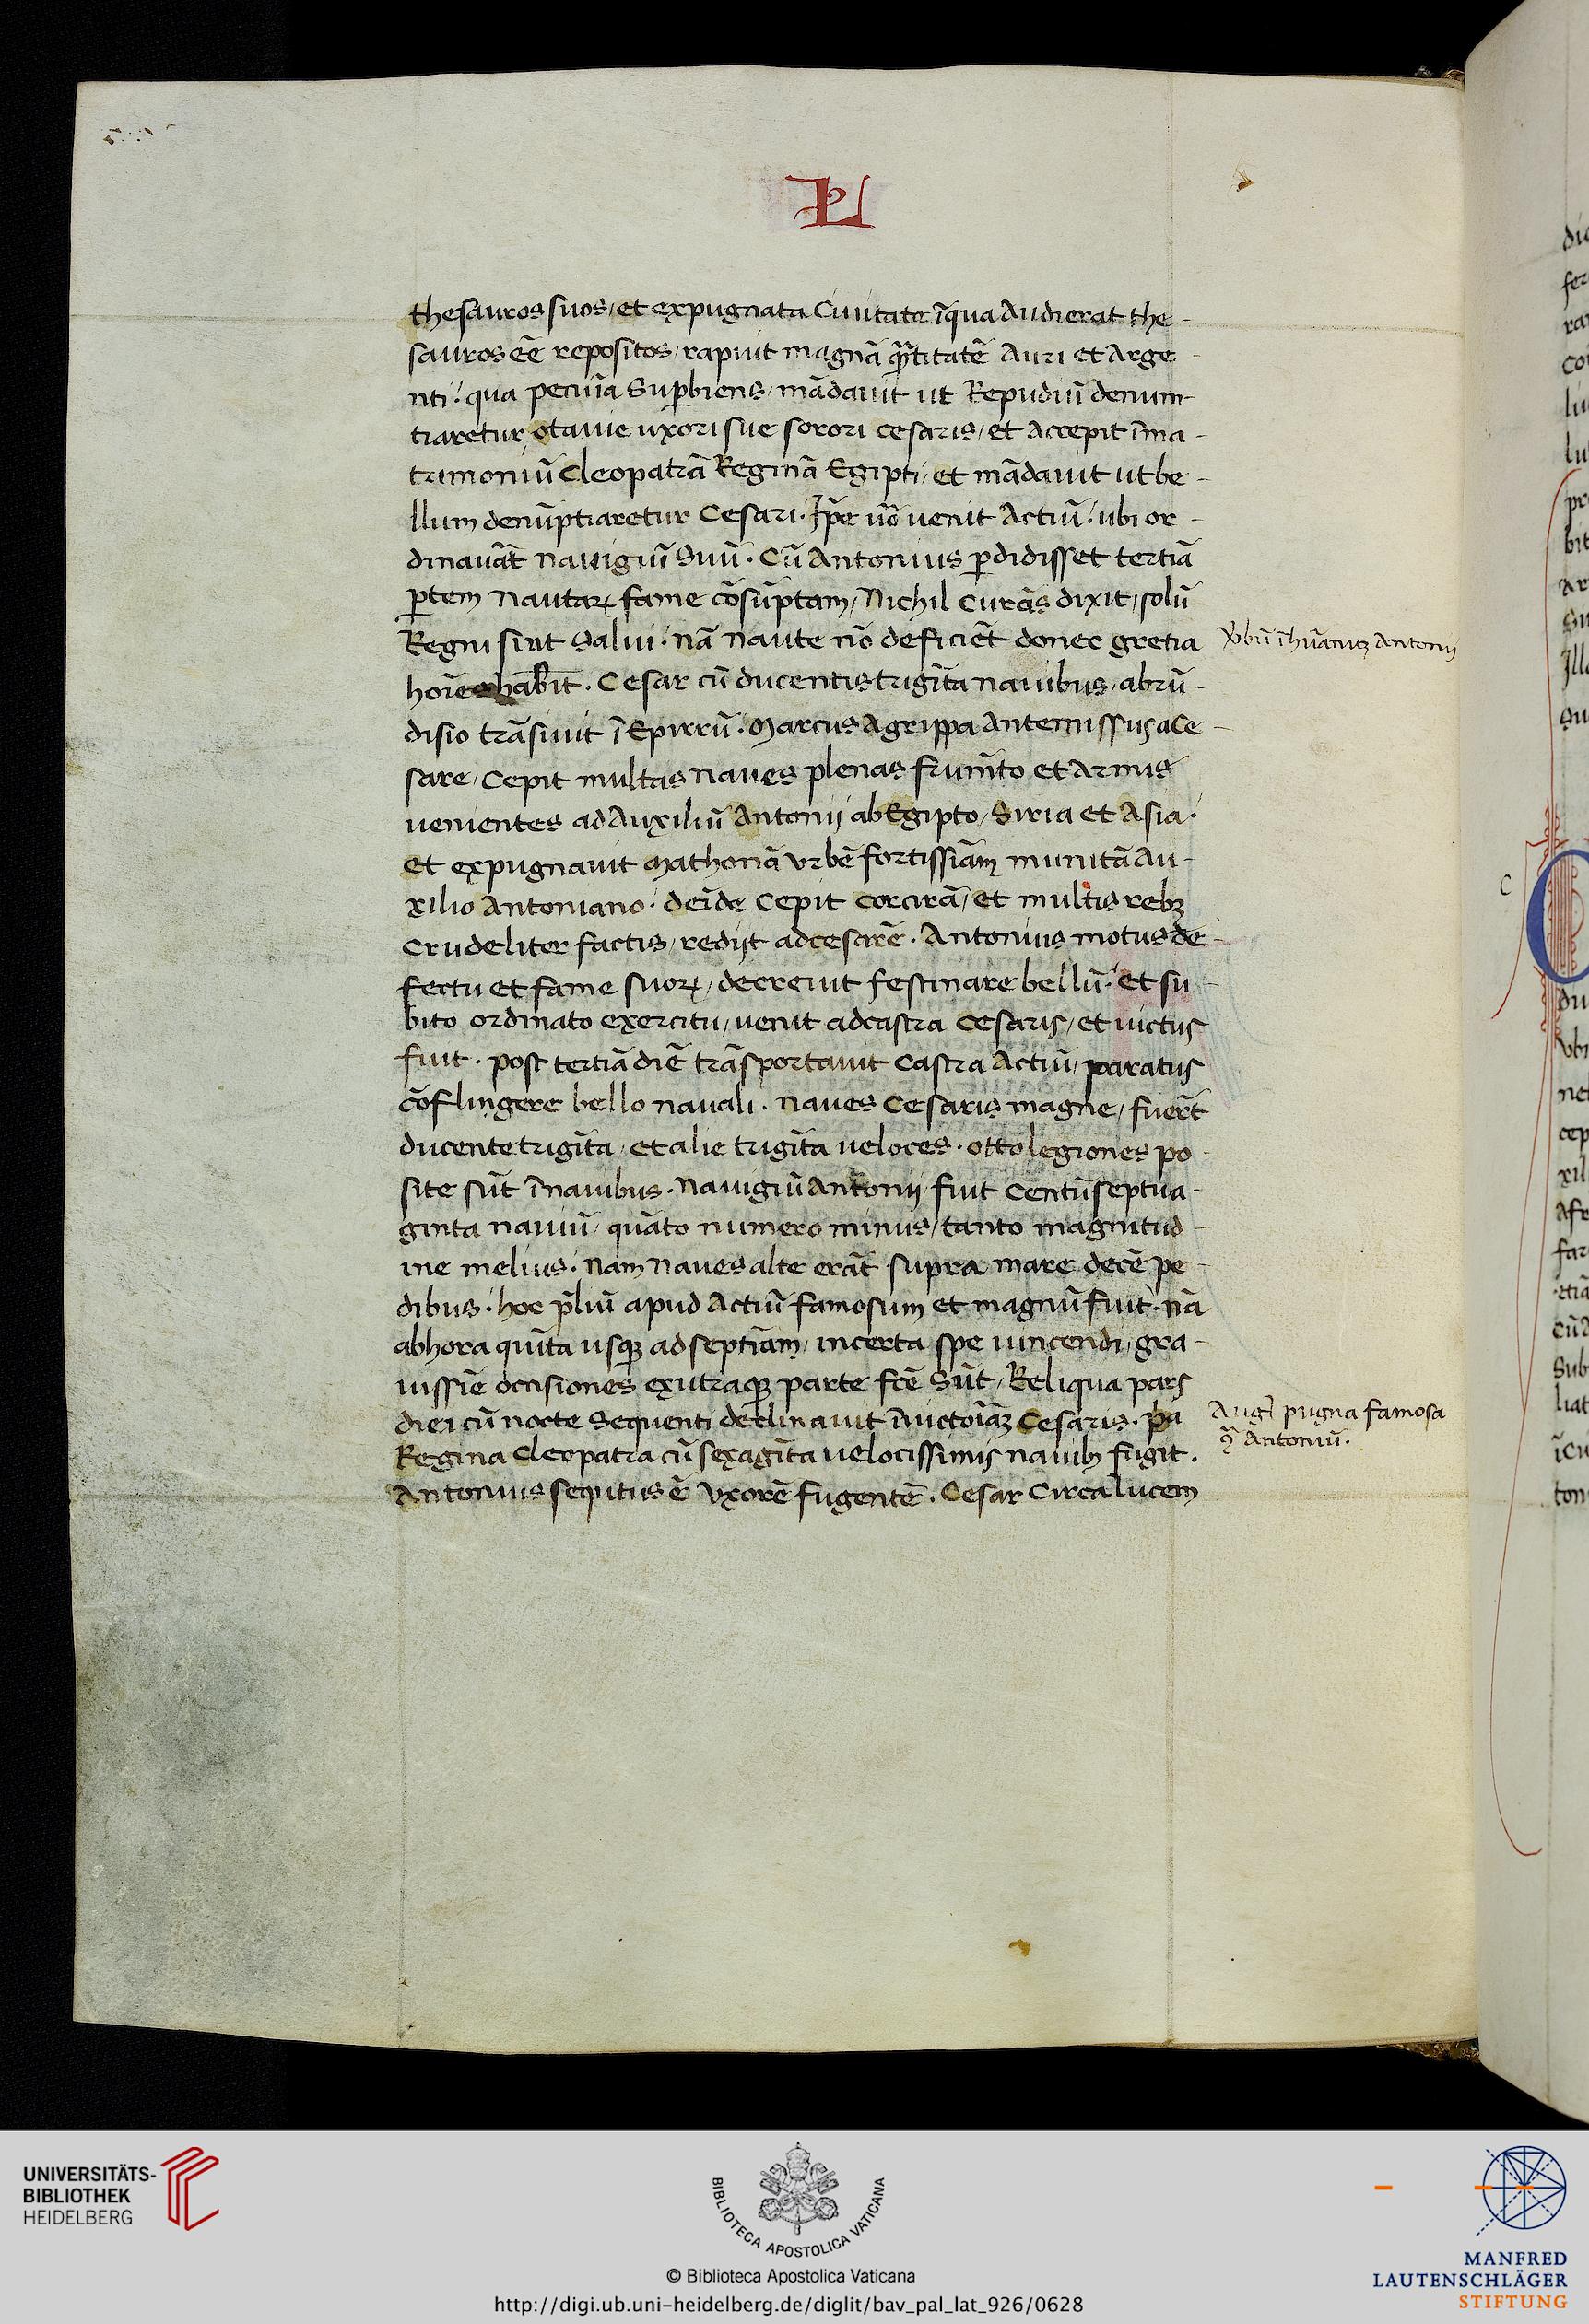 L
thesauros suos / et expugnata Ciuitate ĩ qua Audierat the-
sauros eẽ repositos / rapuit magnã q̃titatẽ Auri et Arge-
nti: qua pecuĩa Supbiens / mãdauit ut Repudiũ denum-
tiaretur otauie uxori sue sorori cesaris / et Accepit ĩ ma-
trimoniũ Cleopatrã Reginã Egipti / et mãdauit ut be-
llum denũptiaretur Cesari. Ip̃e uõ uenit Actiũ: ubi or-
dinauãt nauigiũ suũ. Cũ Antonius pdidisset tertiã
ptem Nautaꝝ fame cõsũptam / Nichil Curãs dixit / solũ
Regni sint Salui. nã Naute nõ deficiẽt donec gretia
hoĩes habit̃. Cesar cũ ducentis trigĩta nauibus / abrũ-
disio trãsiuit ĩ Epirrũ. Marcus Agrippa Antemissus a Ce-
sare / Cepit multas Naues plenas frumẽto et Armis
uenientes ad Auxiliũ Antonij ab Egipto / Siria et Asia.
et expugnauit Mathonã urbẽ fortissiãm munitã Au-
xilio Antoniano. deĩde Cepit corcirã / et multis rebꝫ
crudeliter factis / redijt ad cesarẽ. Antonius motus de-
fectu et fame suoꝝ / decreuit festinare bellũ. et su-
bito ordinato exercitu / uenit ad castra Cesaris / et uictus
fuit. post tertiã diẽ trãsportauit Castra Actiũ / paratus
cõflingere bello nauali. Naues Cesaris magne / fuer̃t
ducente trigĩta / et alie trigĩta ueloces. otto legiones po-
site sũt ĩ nauibus. Nauigiũ Antonij fuit Centũ septua-
ginta nauiũ / quãto numero minus / tanto magnitud-
ine melius. Nam Naues alte erãt supra mare decẽ pe-
dibus. hoc p̃liũ apud Actiũ famosum et magnũ fuit. nã
ab hora quĩta usqꝫ ad septĩam / incerta spe uincendi / gra-
uissiẽ occisiones ex utraqꝫ parte fcẽ sũt / Reliqua pars
diei cũ nocte Sequenti declinauit ĩ uictoĩaꝫ Cesaris. pã
Regina Cleopatra cũ sexagĩta uelocissimis nauibꝫ fugit.
Antonius sequtus ẽ Uxorẽ fugentẽ. Cesar Circa lucem
Antonij
Augꝰ pugna famosa
Antoniũ.
C
UNIVERSITÄTS-
BIBLIOTHEK
HEIDELBERG
BIBLIOTECA APOSTOLICA VATICANA
© Biblioteca Apostolica Vaticana
http://digi.ub.uni-heidelberg.de/diglit/bav_pal_lat_926/0628
MANFRED
LAUTENSCHLÄGER
STIFTUNG